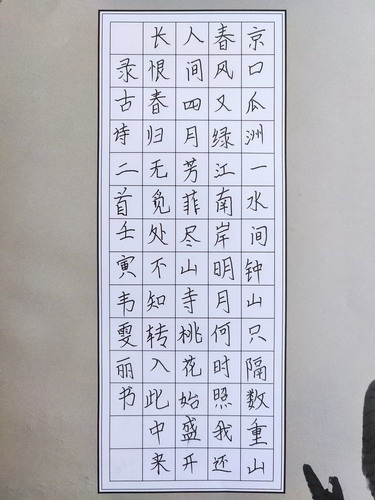 京口瓜洲一水间钟山只隔数重山
春风又绿江南岸明月何时照我还
人间四月芳菲尽山寺桃花始盛开
长恨春归无觅处不知转入此中来
录古诗二首壬寅韦雯丽书